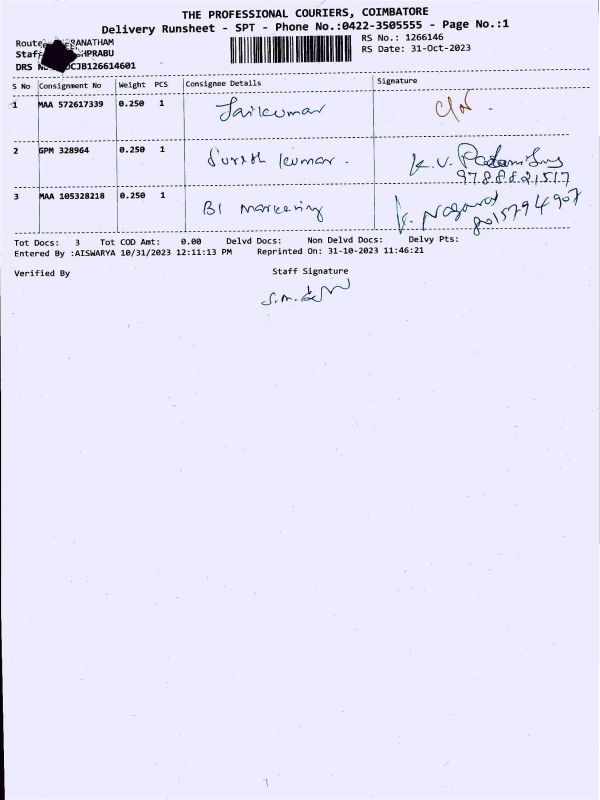 THE PROFESSIONAL COURIERS, COIMBATORE
Delivery Runsheet - SPT - Phone No.:0422-3505555 - Page No.:1
Route RANATHAM
RS No.: 1266146
Staff HPRABU
RS Date: 31-Oct-2023
DRS CJB126614601
S No Consignment No Weight PCS Consignee Details Signature
1 MAA 572617339 0.250 1 Jaikumar
2 GPM 328964 0.250 1 Suresh kumar. K.V.
9788821517
3 MAA 105328218 0.250 1 BI Marketing Nagaraj
Tot Docs: 3 Tot COD Amt: 0.00 Delvd Docs: Non Delvd Docs: Delvy Pts:
Entered By :AISWARYA 10/31/2023 12:11:13 PM Reprinted On: 31-10-2023 11:46:21
Verified By Staff Signature